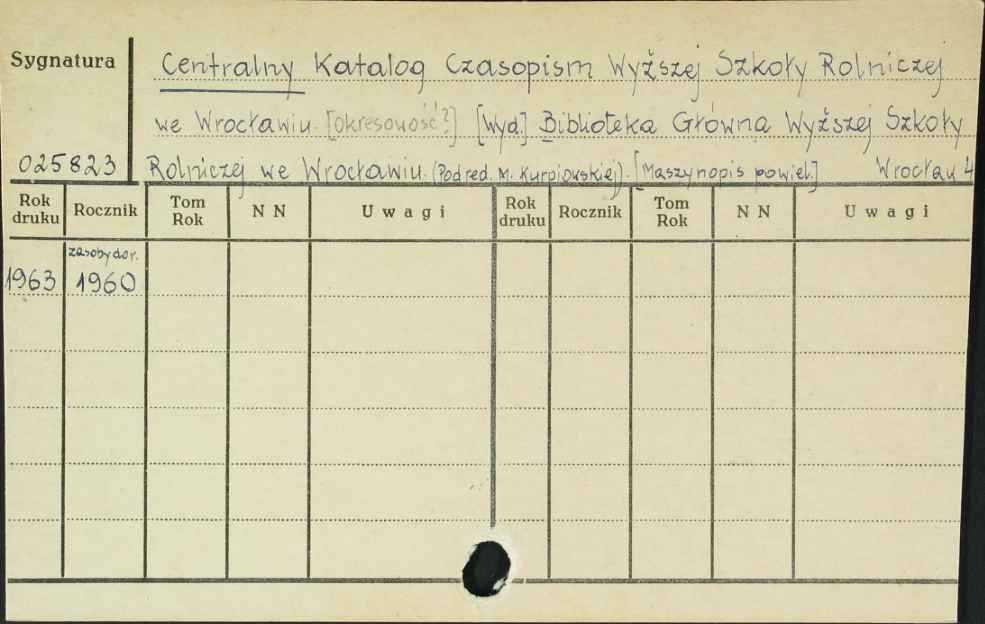 Sygnatura
Centralny Katalog Czasopism Wyższej Szkoły Rolniczej
we Wrocławiu. [okresowość?] [Wyd.] Biblioteka Główna Wyższej Szkoły
025823 Rolniczej we Wrocławiu. (Pod red. M. Kurpiowskiej). [Maszynopis powiel.] Wrocław 4
Rok druku Rocznik Tom Rok NN Uwagi Rok druku Rocznik Tom Rok NN Uwagi
zasoby do r.
1963 1960